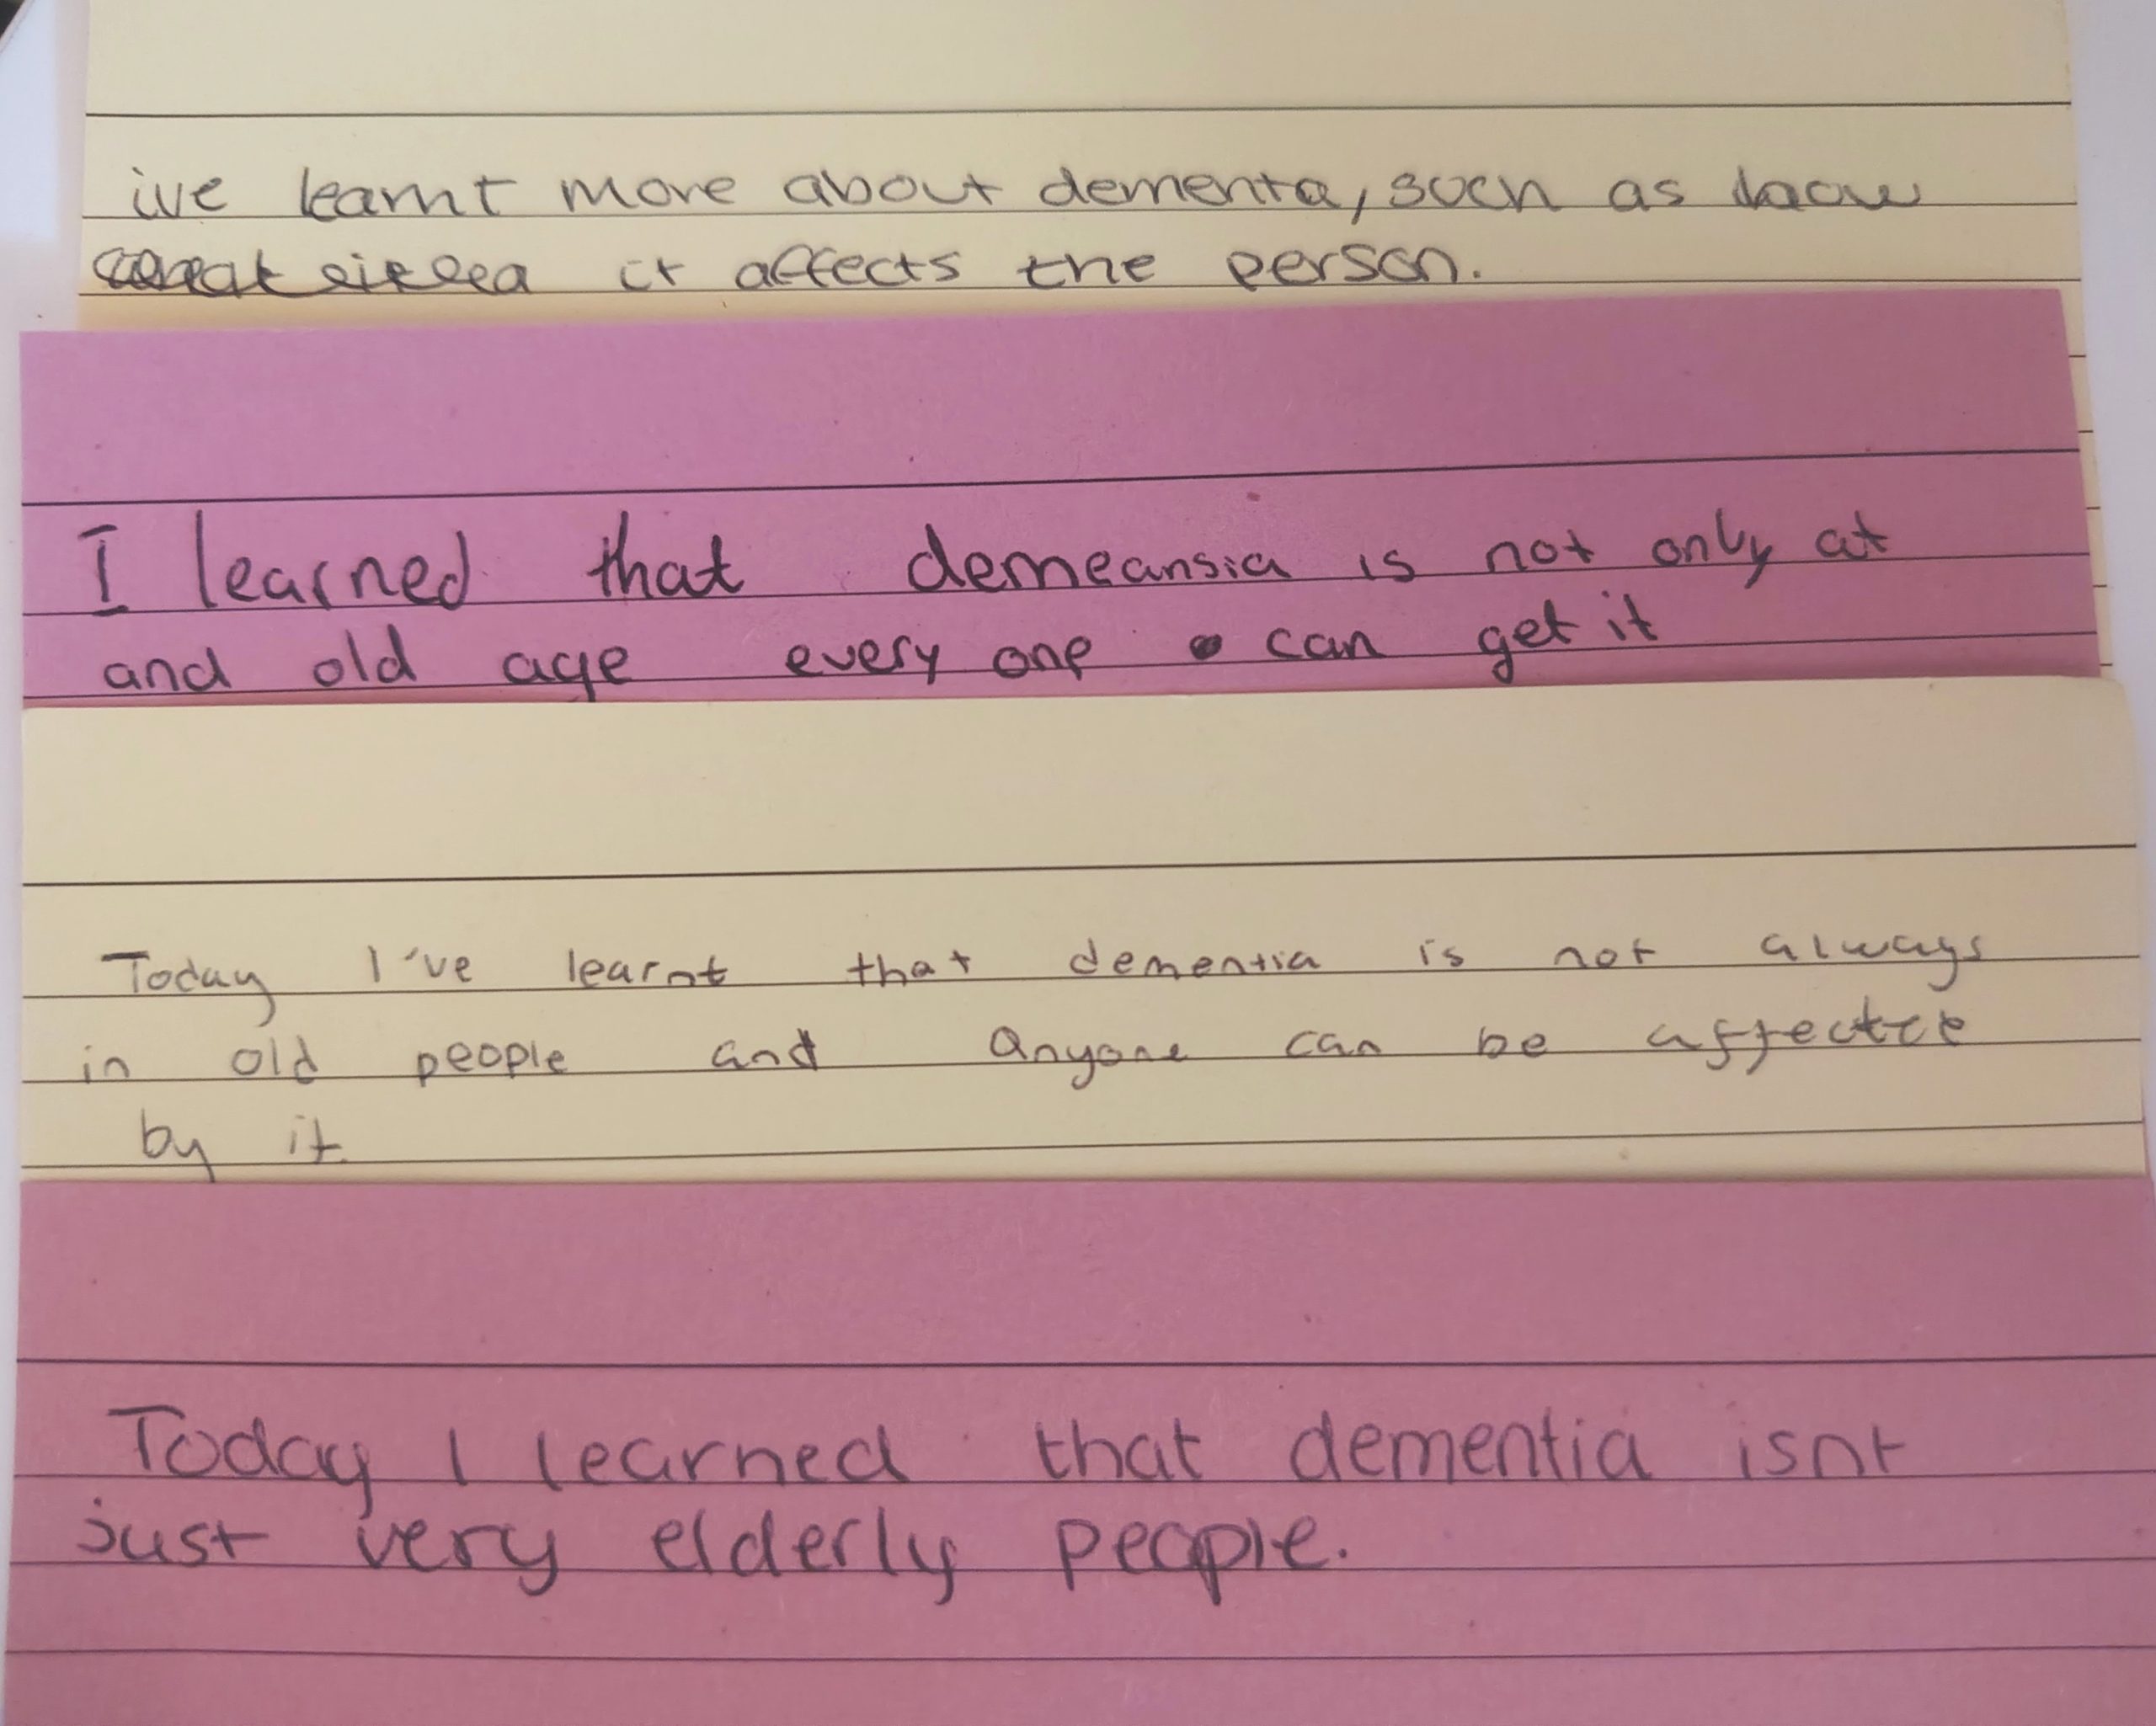 ive learnt more about dementa, such as how
it affects the person.
I learned that demeansia is not only at
and old age every one can get it
Today I've learnt that dementia is not always
in old people and anyone can be affected
by it.
Today I learned that dementia isnt
just very elderly people.